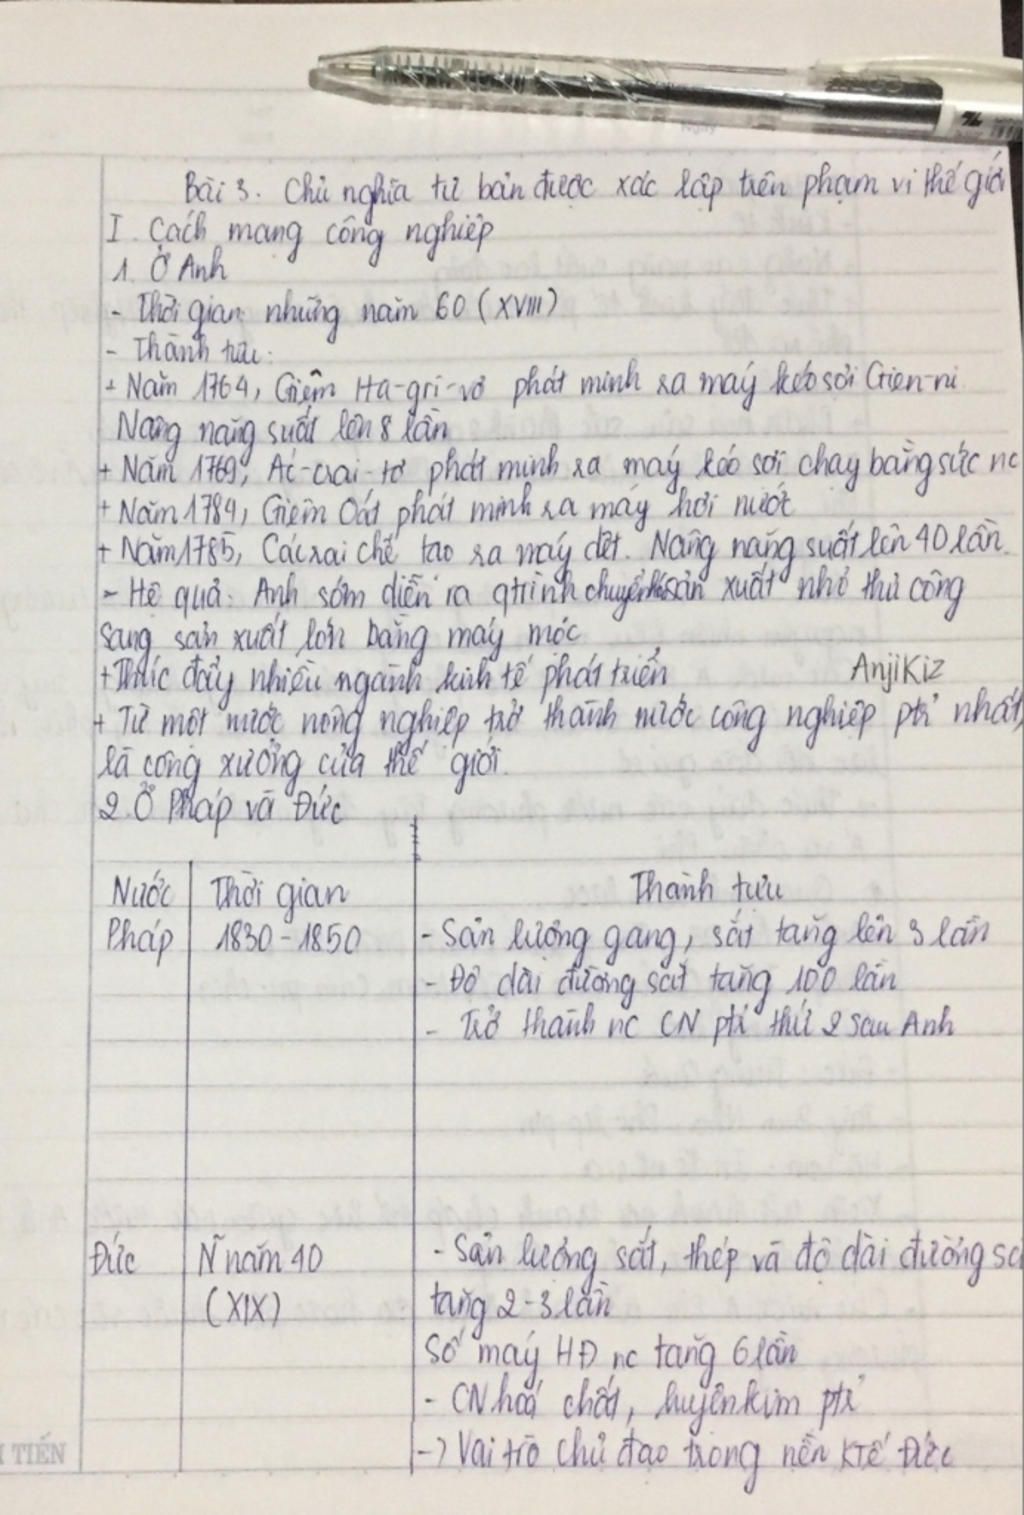 Bài 3. Chủ nghĩa tư bản được xác lập trên phạm vi thế giới
I. Cách mạng công nghiệp
1. Ở Anh
- Thời gian: những năm 60 (XVIII)
- Thành tựu:
+ Năm 1764, Giêm Ha-gri-vơ phát minh ra máy kéo sợi Gien-ni
Nâng năng suất lên 8 lần
+ Năm 1769, Ác-crai-tơ phát minh ra máy kéo sợi chạy bằng sức nc
+ Năm 1784, Giêm Oát phát minh ra máy hơi nước
+ Năm 1785, Các-rai chế tạo ra máy dệt. Nâng năng suất lên 40 lần.
- Hệ quả: Anh sớm diễn ra qtrình chuyển từ sản xuất nhỏ thủ công
sang sản xuất lớn bằng máy móc
+ Thúc đẩy nhiều ngành kinh tế phát triển
AnjiKiz
+ Từ một nước nông nghiệp trở thành nước công nghiệp ptr nhất,
là công xưởng của thế giới.
2. Ở Pháp và Đức
Nước Thời gian Thành tựu
Pháp 1830-1850 - Sản lượng gang, sắt tăng lên 3 lần
- Độ dài đường sắt tăng 100 lần
- Trở thành nc CN ptr thứ 2 sau Anh
Đức Ñ năm 40 - Sản lượng sắt, thép và độ dài đường
(XIX) tăng 2-3 lần
Số máy HĐ nc tăng 6 lần
- CN hoá chất, luyện kim ptr
-> Vai trò chủ đạo trong nền KTế Đức
TIẾN